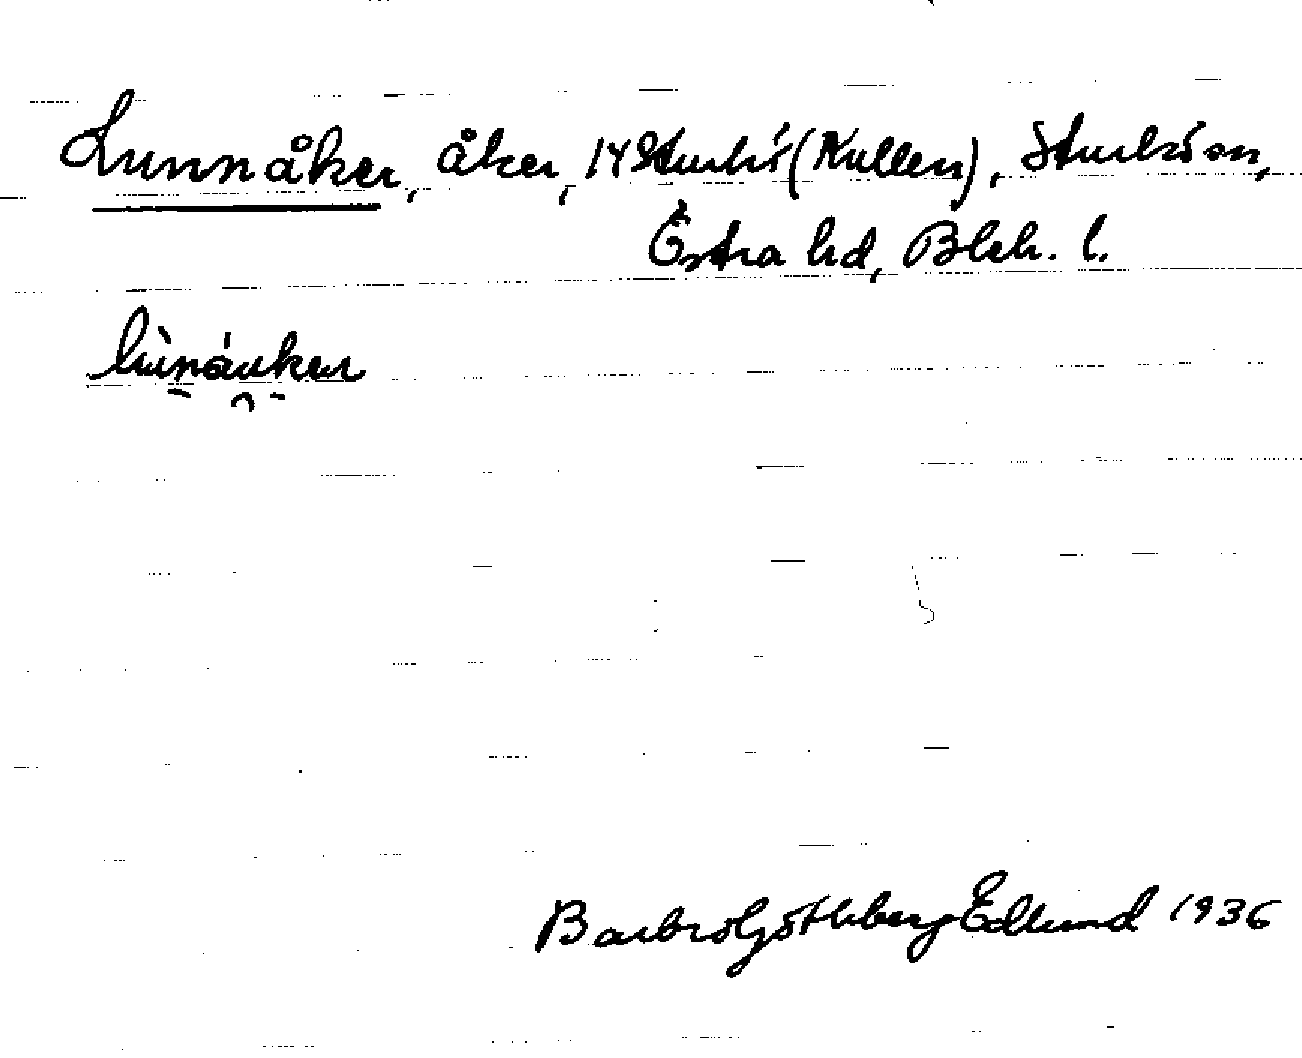 Lunnåker, åker, 14 Sturkö (Kullen), Sturkö sn,
Östra hd, Blek. l.
Barbro Göthberg Edlund 1936